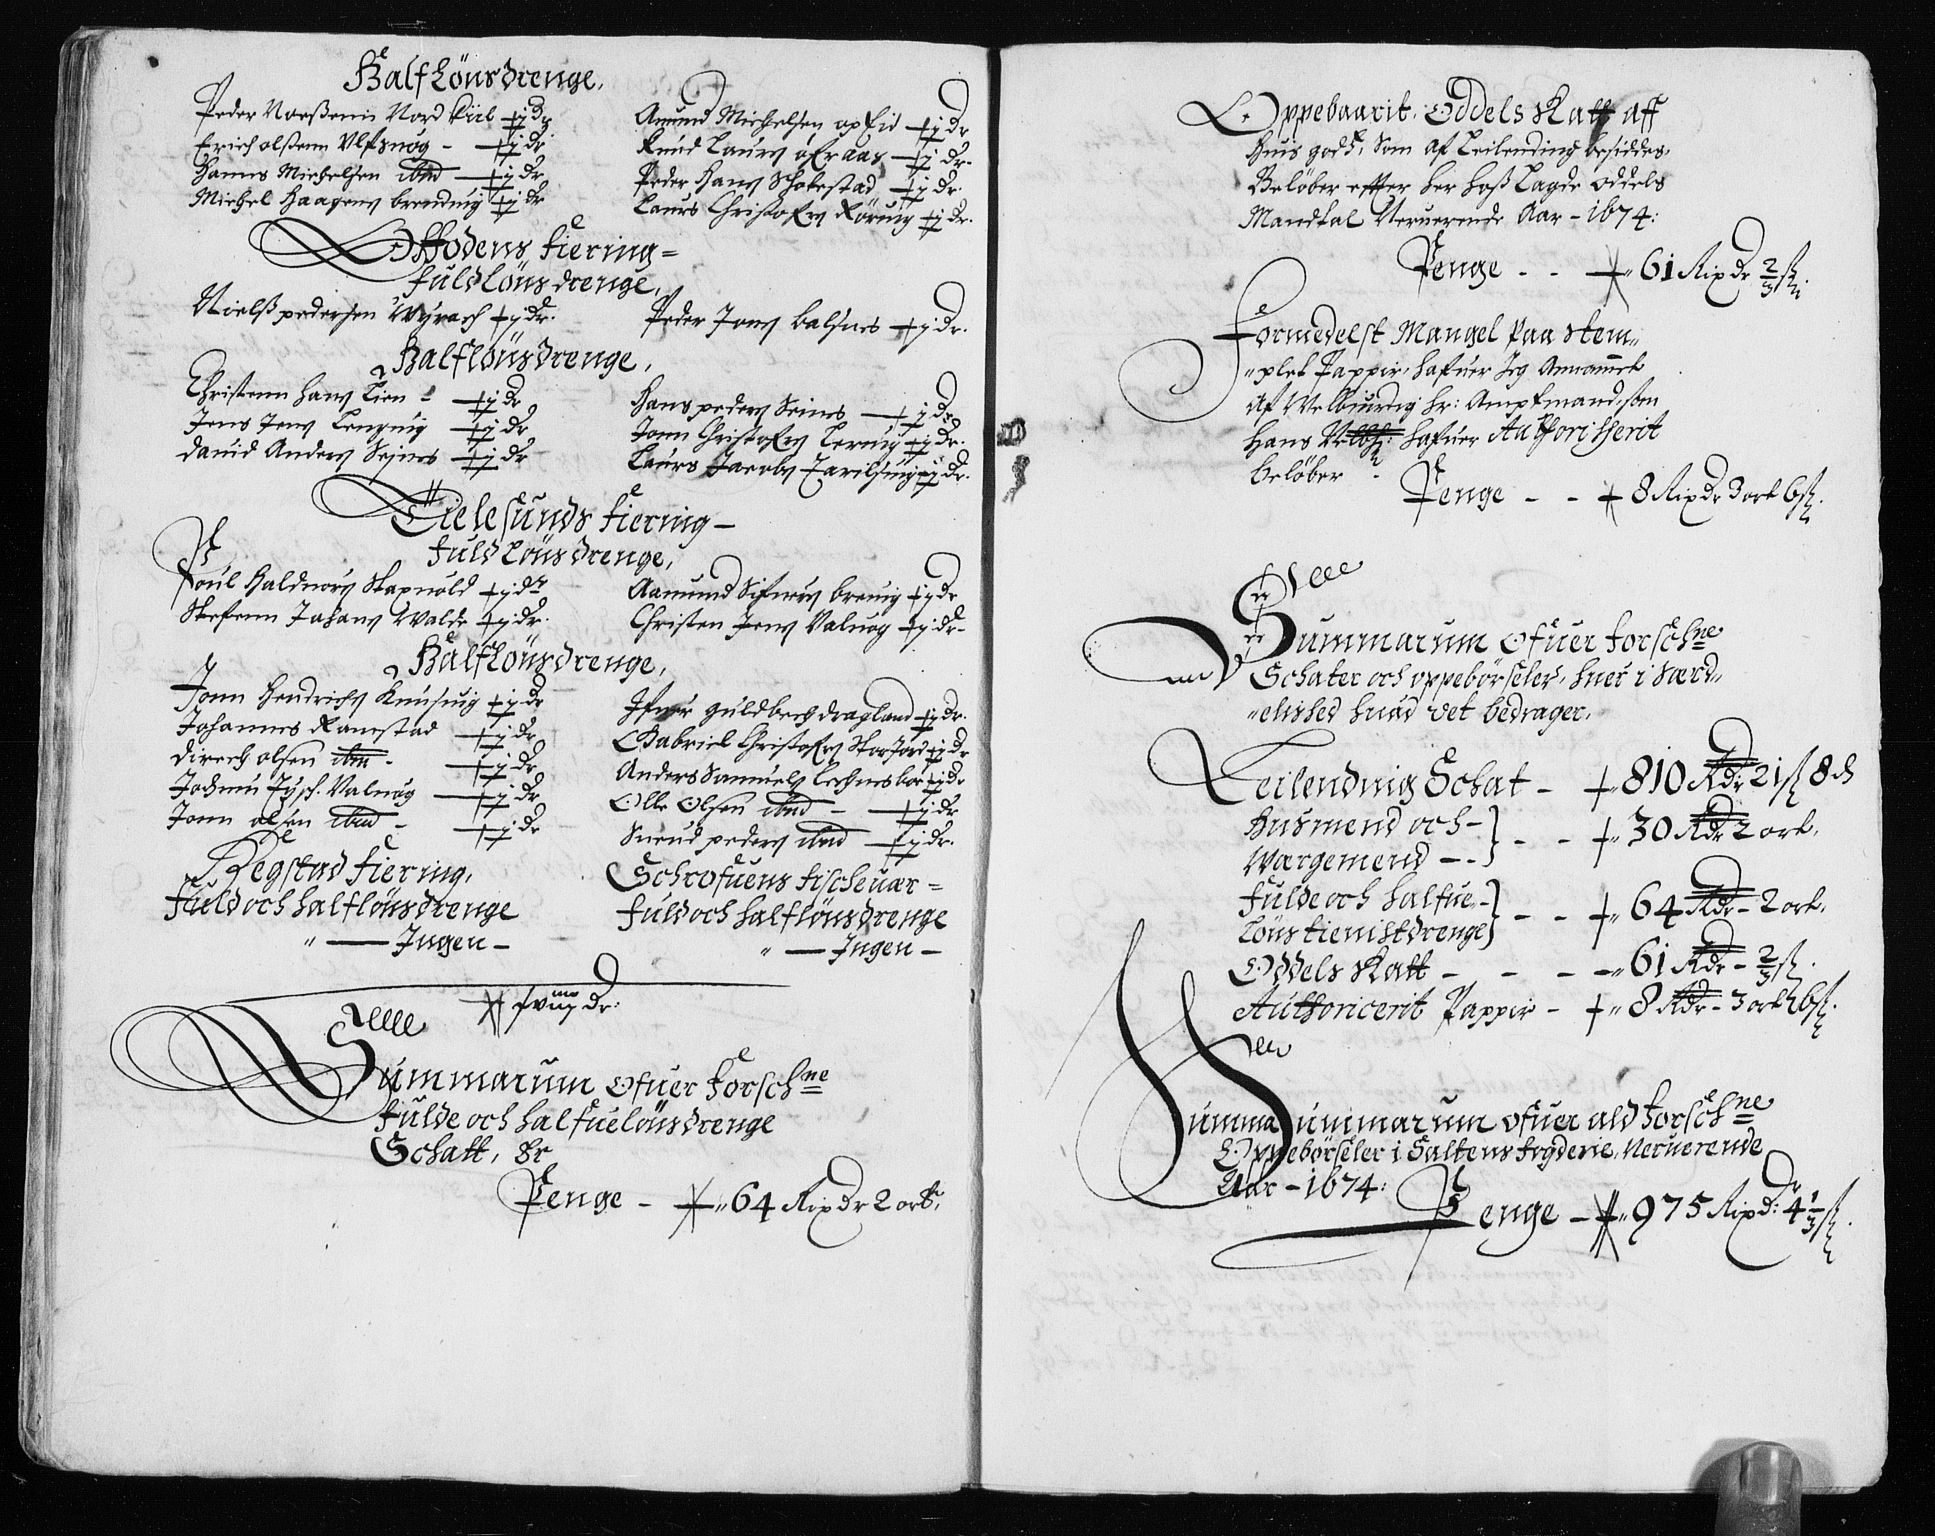 Half Löns drenge,
Peder Nordfiil
Erich olssenn Vlfsuog - ½ dr
Hanns Michelsen ibnd - ½ dr
Michel Haagens brenduig ½ dr
Amund Michelsen opfid ½ dr
Knud Laurs ofraas ½ dr
Peder Hans Schotestad ½ dr.
Laurs Christofers Röruig ½ dr.
Offodens fiering =
fuld löns drenge,
Nielss pedersen 1 dr.
Peder Jons balsnes 1 dr.
Half löns drenge,
Christenn hans Lien - ½ dr
Jens Jens Lenguig ½ dr
dauid Anders Seines ½ dr
Hans peders Seines ½ dr
Jonn Christofers Leruig ½ dr.
Laurs Jacobs ½ dr.
Tielesunds fiering -
fuld Löns drenge,
Poul Halduors Skaguold 1 dr
Steffenn Johans Walde 1 dr.
Aamund Sifuers breuig 1 dr
Christen Jens Valuog 1 dr -
Half Löns drenge,
Jonn Hendrichs Knusuig ½ dr
Johannes Ramstad ½ dr
direch olsen ibm - ½ dr
Valuog ½ dr
Jonn olsen ibnd - ½ dr
Ifuer guldbech dragland ½ dr.
Gabriel Christofers Storjord ½ dr
Anders Samuels ½ dr
Olle Olsen ibnd - ½ dr
Suend peders ibnd ½ dr.
Hegstad fiering,
Fuld och half löns drenge
" — Ingen -
Schrofuens fischeuær =
fuld och half löns drenge
" — Ingen -
Summarum ofuer forschne
fulde och halfue löns drenge
Schatt, Er
Penge - 64 Rixdr 2 ort,
Oppebaarit Oddels Skatt aff
huis godz, Som af Leilending besiddes,
Belöber effter her hoss Lagde Oddels
Mandtal Neruerende Aar - 1674:
Penge - - " 61 Rixdr ⅔ ß.
Formedelst Mangel paa stem„
„plet Pappir, hafuer Jeg Annammet
Af Welbiurdig Hr: Amptmand, som
hans Velbh: hafuer Authorisserit
belöber -
Penge - - 8 Rixdr 3 ort 6 ß.
Summarum Ofuer forschne
Schater och oppebörseler, huer i særd„
„elished huad det bedrager.
Leilending Schat - 810 Rdr 21 ß 8 d
Husmend och -
Wargemend - - } - - " 30 Rdr 2 ort,
Fulde och halfue -
Löns tienistdrenge } - - " 64 Rdr - 2 ort,
Oddels Skatt - - - " 61 Rdr - ⅔ ß.
Authoricerit Pappir - " 8 Rdr - 3 ort 6 ß.
Summa Summarum ofuer ald forschne
Oppebörseler i Saltens fogderie, Neruerende
Aar - 1674:
Penge - " 975 Rixdr: 4 ⅓ ß.